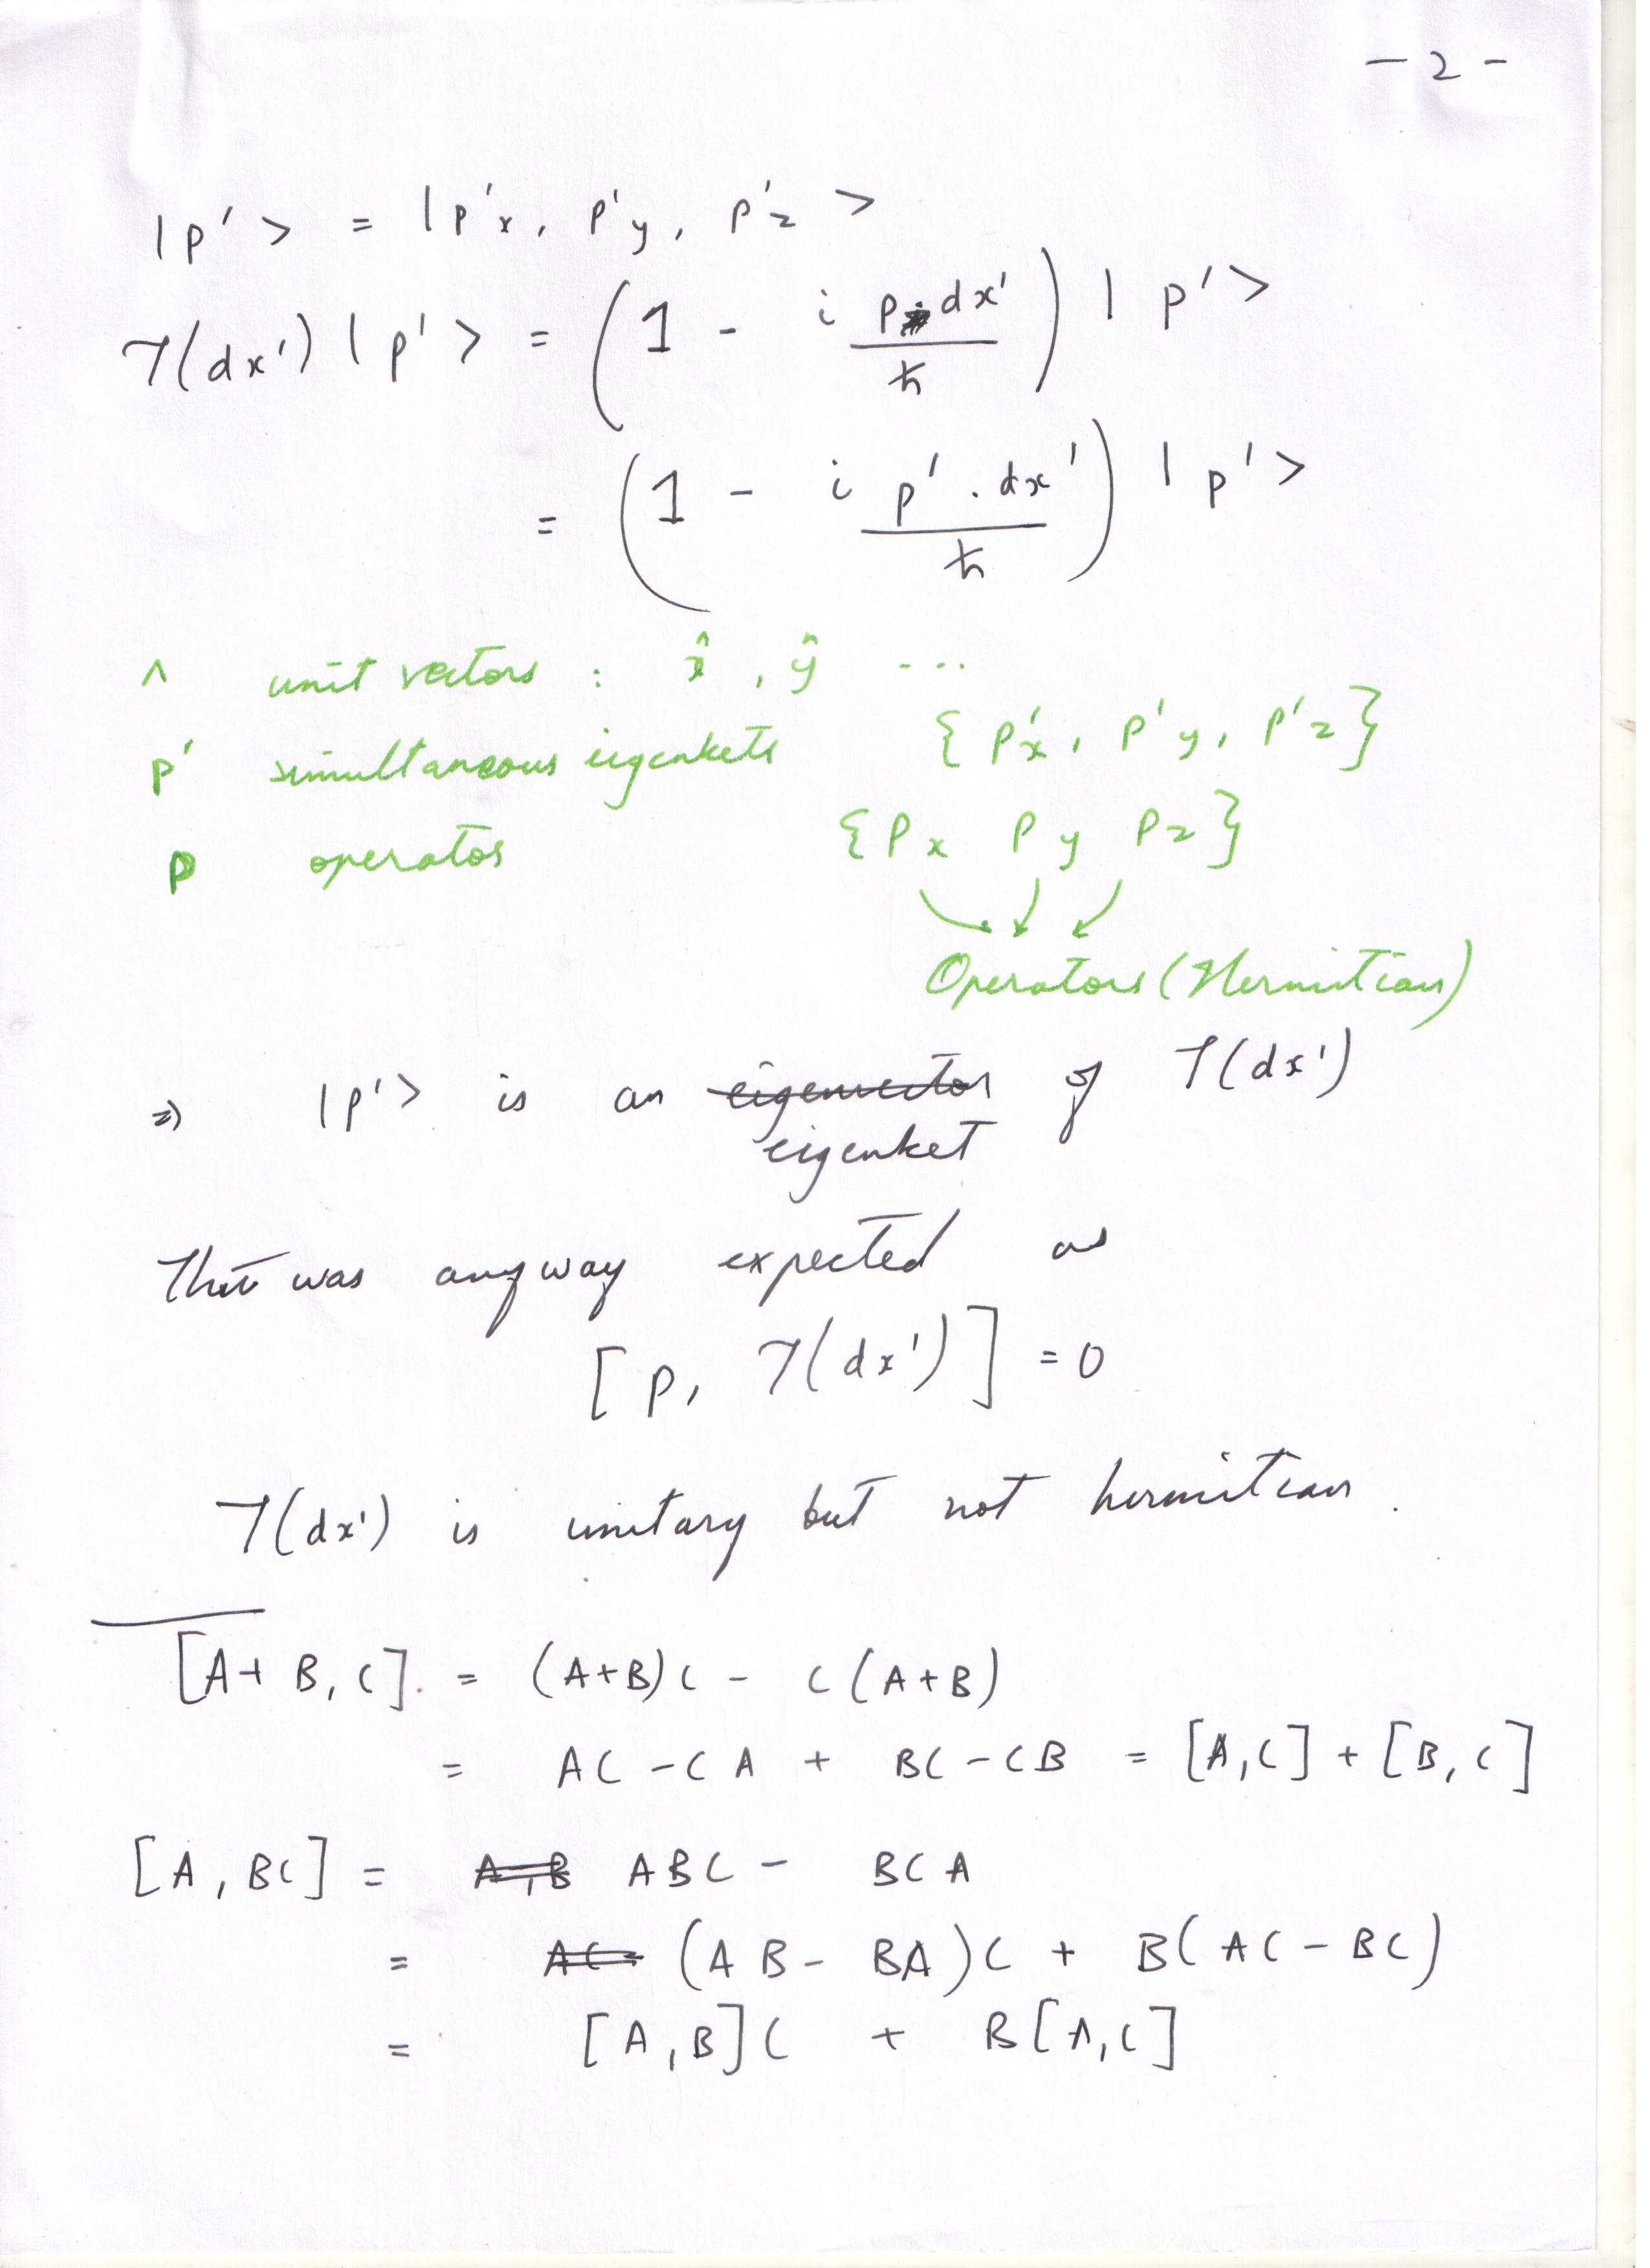 - 2 -
|p'> = |p'x, p'y, p'z>
T(dx')|p'> = (1 - i p·dx'/ħ) |p'>
= (1 - i p'·dx'/ħ) |p'>
^ unit vectors : x̂, ŷ ...
p' simultaneous eigenkets {p'x, p'y, p'z}
p operator {Px Py Pz}
Operators (Hermitian)
⇒ |p'> is an eigenvector of T(dx')
eigenket
That was anyway expected as
[p, T(dx')] = 0
T(dx') is unitary but not hermitian.
[A+B, C] = (A+B)C - C(A+B)
= AC - CA + BC - CB = [A,C] + [B,C]
[A, BC] = A,B ABC - BCA
= AC- (AB - BA)C + B(AC - BC)
= [A,B]C + B[A,C]